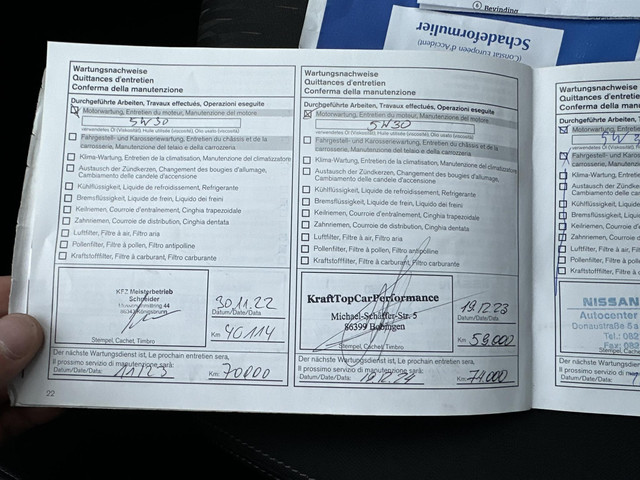 6 Bevinding
Schadeformulier
(Constat Européen d'Accident)
Wartungsnachweise
Quittances d'entretien
Conferma della manutenzione
Durchgeführte Arbeiten, Travaux effectués, Operazioni eseguite
Motorwartung, Entretien du moteur, Manutenzione del motore
5W30
verwendetes Öl (Viskosität), Huile utilisée (viscosité), Olio usato (viscosità)
Fahrgestell- und Karosseriewartung, Entretien du châssis et de la
carrosserie, Manutenzione del telaio e della carrozzeria
Klima-Wartung, Entretien de la climatisation, Manutenzione del climatizzatore
Austausch der Zündkerzen, Changement des bougies d'allumage,
Cambiamento delle candele d'accensione
Kühlflüssigkeit, Liquide de refroidissement, Refrigerante
Bremsflüssigkeit, Liquide de frein, Liquido dei freini
Keilriemen, Courroie d'entraînement, Cinghia trapezoidale
Zahnriemen, Courroie de distribution, Cinghia dentata
Luftfilter, Filtre à air, Filtro aria
Pollenfilter, Filtre à pollen, Filtro antipolline
Kraftstofffilter, Filtre à carburant, Filtro carburante
KFZ Meisterbetrieb
Schneider
Stempel, Cachet, Timbro
30.11.22
Datum/Date/Data:
Km: 40114
Der nächste Wartungsdienst ist, Le prochain entretien sera,
Il prossimo servizio di manutenzione sarà:
Datum/Date/Data: 11/23
Km: 70000
22
Wartungsnachweise
Quittances d'entretien
Conferma della manutenzione
Durchgeführte Arbeiten, Travaux effectués, Operazioni eseguite
Motorwartung, Entretien du moteur, Manutenzione del motore
5W30
verwendetes Öl (Viskosität), Huile utilisée (viscosité), Olio usato (viscosità)
Fahrgestell- und Karosseriewartung, Entretien du châssis et de la
carrosserie, Manutenzione del telaio e della carrozzeria
Klima-Wartung, Entretien de la climatisation, Manutenzione del climatizzatore
Austausch der Zündkerzen, Changement des bougies d'allumage,
Cambiamento delle candele d'accensione
Kühlflüssigkeit, Liquide de refroidissement, Refrigerante
Bremsflüssigkeit, Liquide de frein, Liquido dei freini
Keilriemen, Courroie d'entraînement, Cinghia trapezoidale
Zahnriemen, Courroie de distribution, Cinghia dentata
Luftfilter, Filtre à air, Filtro aria
Pollenfilter, Filtre à pollen, Filtro antipolline
Kraftstofffilter, Filtre à carburant, Filtro carburante
KraftTopCarPerformance
Michael-Schäffer-Str. 5
86399 Bobingen
Stempel, Cachet, Timbro
19.12.23
Datum/Date/Data:
Km: 59.000
Der nächste Wartungsdienst ist, Le prochain entretien sera,
Il prossimo servizio di manutenzione sarà:
Datum/Date/Data: 19.12.24
Km: 74.000
Wartungsnachweise
Quittances d'entretien
Conferma della
Durchgeführte Arbeiten
Motorwartung, Entretien
5W
verwendetes Öl (Viskosität)
Fahrgestell- und
carrosserie, Man
Klima-Wartung, E
Austausch der Zünd
Cambiamento delle
Kühlflüssigkeit, Li
Bremsflüssigkeit,
Keilriemen, Courr
Zahnriemen, Cou
Luftfilter, Filtre à a
Pollenfilter, Filtre
Kraftstofffilter, Filt
NISSAN
Autocenter
Donaustraße
Tel.: 082
Fax: 082
Stempel, Cachet
Der nächste Wartungsdien
Il prossimo servizio di m
Datum/Date/Data: